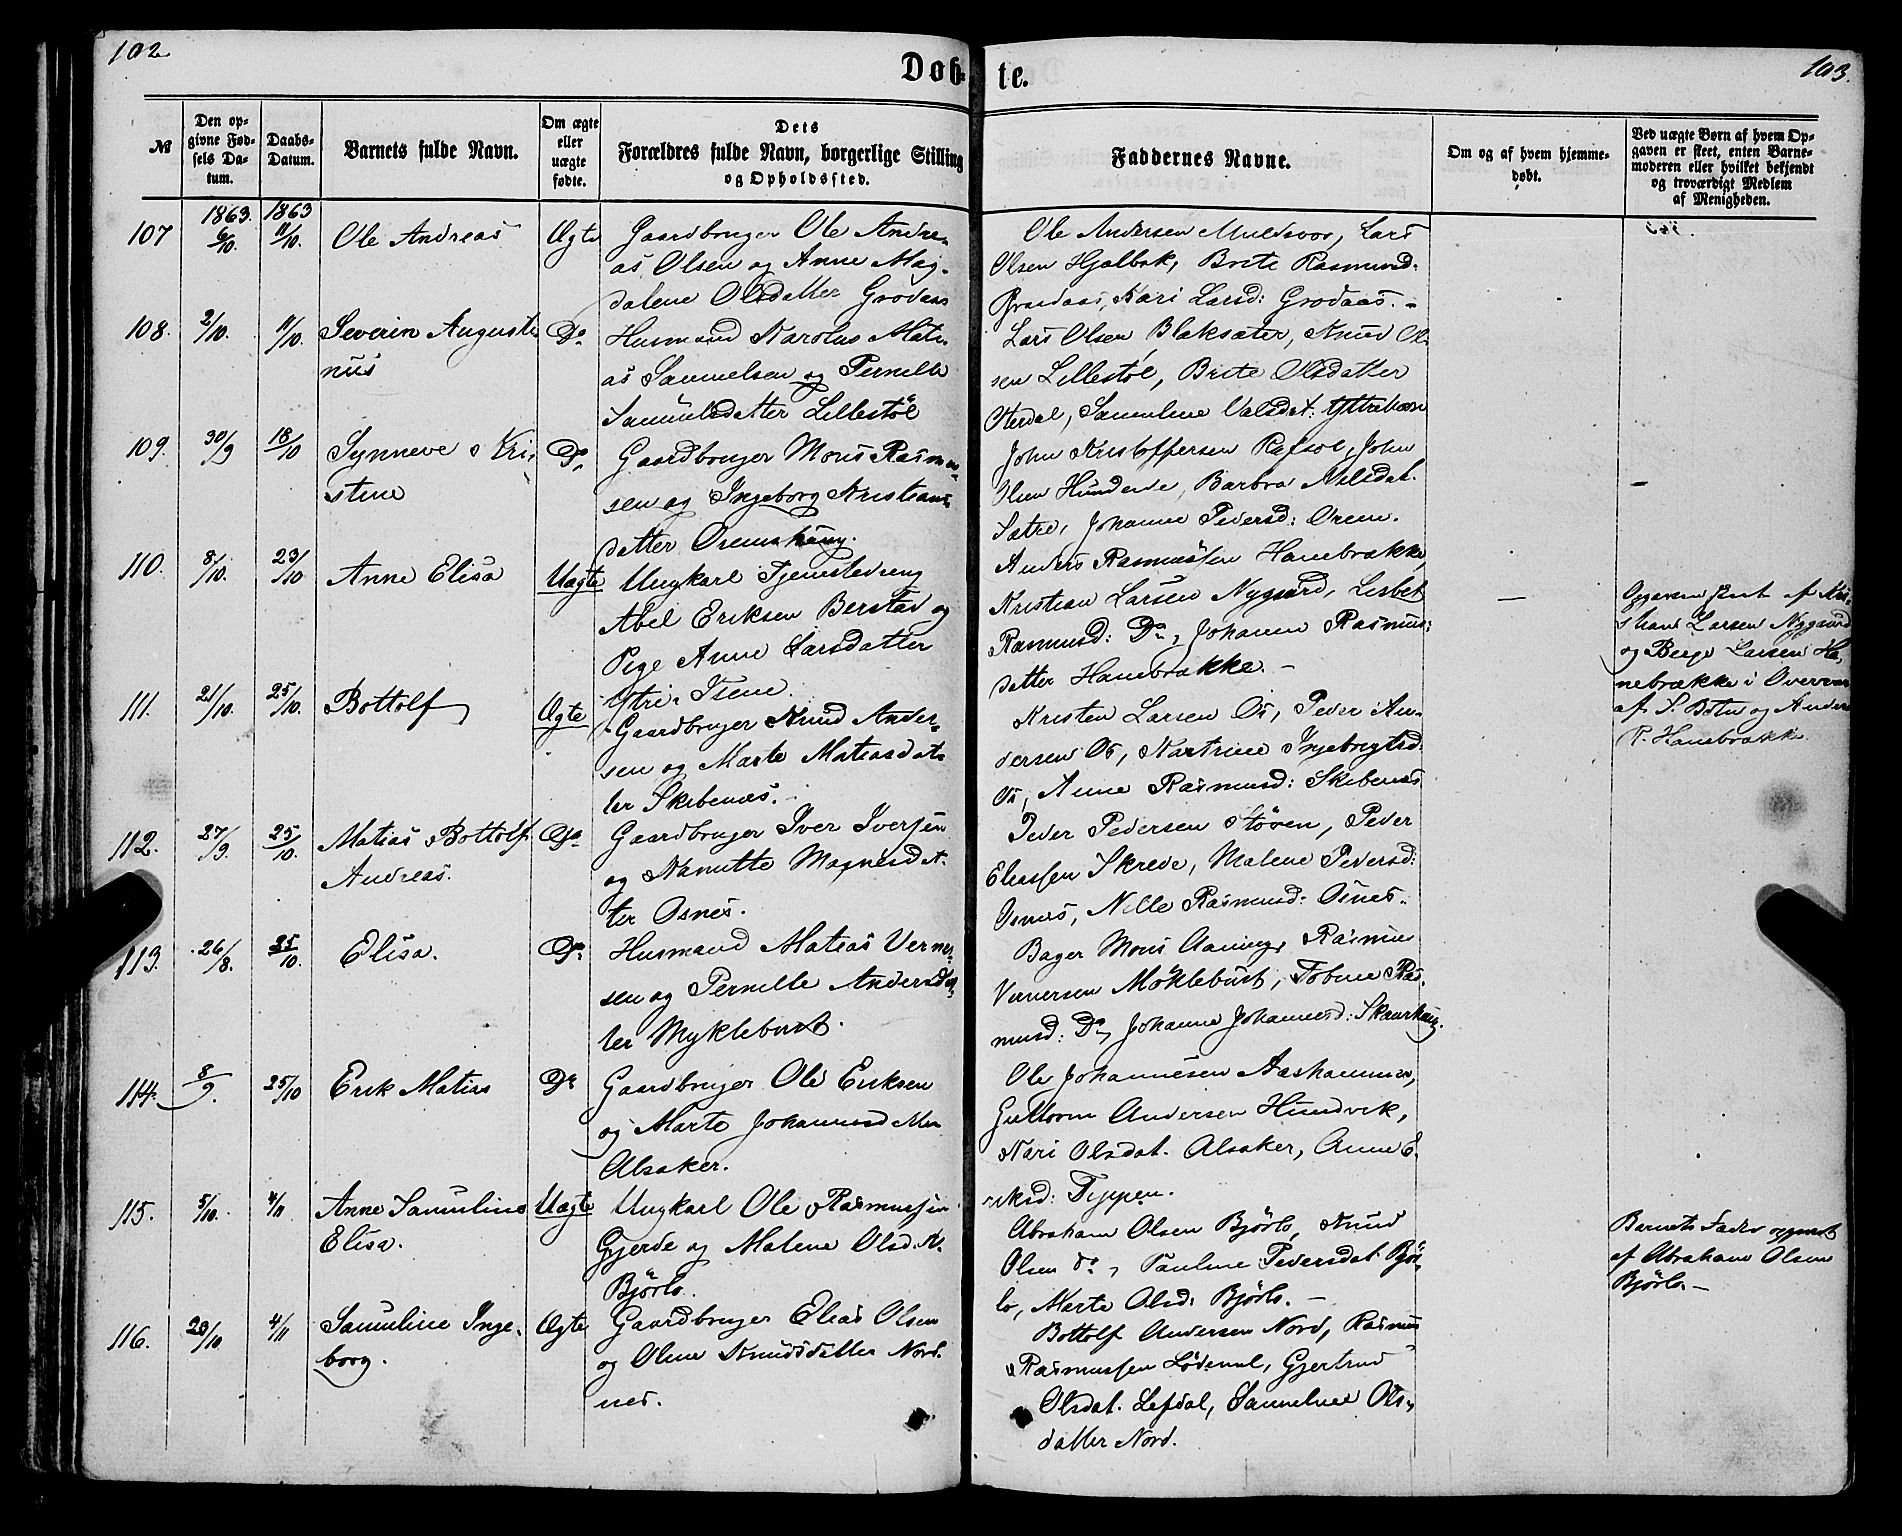 102.
Døb-
te.
103.
№
Den op-
givne Fød-
sels Da-
tum.
Daabs-
Datum.
Barnets fulde Navn.
Om ægte
eller
uægte
fødte.
Dets
Forældres fulde Navn, borgerlige Stilling
og Opholdssted.
Faddernes Navne.
Om og af hvem hjemme-
døbt.
Ved uægte Børn af hvem Op-
gaven er skeet, enten Barne-
moderen eller hvilket bekjendt
og troværdigt Medlem
af Menigheden.
1863. 1863
107 6/10. 11/10. Ole Andreas Ægte Gaardbruger Ole Andre-
as Olsen og Anne Mag-
dalene Olsdatter Grodaas
Ole Andersen Muldsvor, Lars
Olsen Hjelbak, Brite Rasmusd:
Grodaas, Kari Larsd: Grodaas. -
108. 2/10. 11/10. Severin Augusti-
nus
Do. Husmand Karolus Mati-
as Samuelsen og Pernille
Samuelsdatter Lillestöl
Lars Olsen Blaksæter, Knud Ol-
sen Lillestöl, Brite Olsdatter
Otterdal, Samuline Valsdat.
109. 30/9 18/10 Synneve Kri-
stine
Do. Gaardbruger Mons Rasmus-
sen og Ingeborg Kristians-
datter Oremshaug.
John Kristoffersen Rafsol, John
Olsen Hundeide, Barbra Nilsdat.
Sætre, Johanne Pedersd: Orem.
110. 8/10. 23/10 Anne Elisa Uægte Ungkarl Tjenestedreng
Abel Eriksen Berstad og
Pige Anne Larsdatter
Ytre Isene.
Anders Rasmussen Hanebrække,
Kristian Larsen Nygaard, Lisbet
Rasmusd: Do, Johanne Rasmus-
datter Hanebrække. -
Opgaven skeet af Kri-
stian Larsen Nygaard
og Larsen Ha-
nebrække i Overvær
af S. og Anders
R. Hanebrække.
111. 21/10. 25/10. Bottolf Ægte Gaardbruger Knud Ander-
sen og Marte Matiasdat-
ter Skibenæs.
Kristen Larsen Os, Peder An-
dersen Os, Kartrine Ingebrigtsd:
Os, Anne Rasmusd: Skibenæs
112. 27/9. 25/10. Matias Bottolf
Andreas.
Do. Gaardbruger Iver Iversen
og Nanutte Magnesdat-
ter Osnes.
Peder Pedersen Støven, Peder
Eliassen Skrede, Malene Pedersd:
Osnæs, Nille Rasmusd: Osnes.
113. 26/8. 25/10. Elisa. Do. Husmand Matias Verner-
sen og Pernille Andersdat-
ter Myklebust.
Bager Mons Aaning, Rasmus
Vernersen Möklebust, Tobine Ras-
musd: Do, Johanne Johannesd: Skaarhaug.
114. 8/9. 25/10 Erik Matias Do Gaardbruger Ole Eriksen
og Marte Johannesdatter
Alsaker.
Ole Johannesen Aashammer,
Guttorm Andersen Hundvik,
Kari Olsdat. Alsaker, Anne E-
riksd: Typpen.
115. 5/10. 4/11 Anne Samuline
Elisa.
Uægte Ungkarl Ole Rasmussen
Gjerde og Malene Olsdat.
Bjørlo.
Abraham Olsen Bjørlo, Knud
Olsen do, Pauline Pedersdat. Björ-
lo, Merte Olsd: Bjørlo. -
Barnets Fader opgivet
af Abraham Olsen
Bjørlo. -
116. 20/10. 4/11 Samuline Inge-
borg.
Ægte Gaardbruger Elias Olsen
og Oline Knudsdatter Nord-
nes.
Bottolf Andersen Nord, Rasmus
Rasmussen Lødemel, Gjertrud
Olsdat. Lefdal, Samuline Ols-
datter Nord.